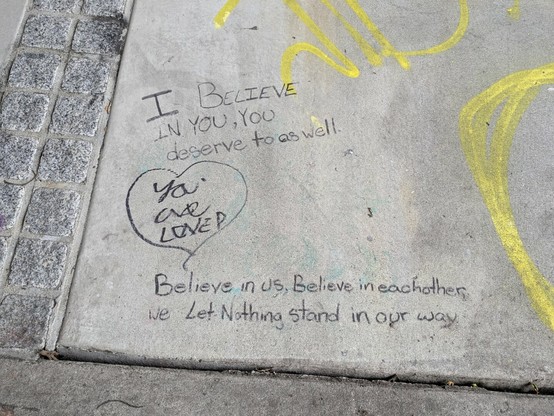 I BELIEVE
IN YOU, YOU
deserve to as well.
You
are
LOVED
Believe in us, Believe in eachother,
we Let Nothing stand in our way